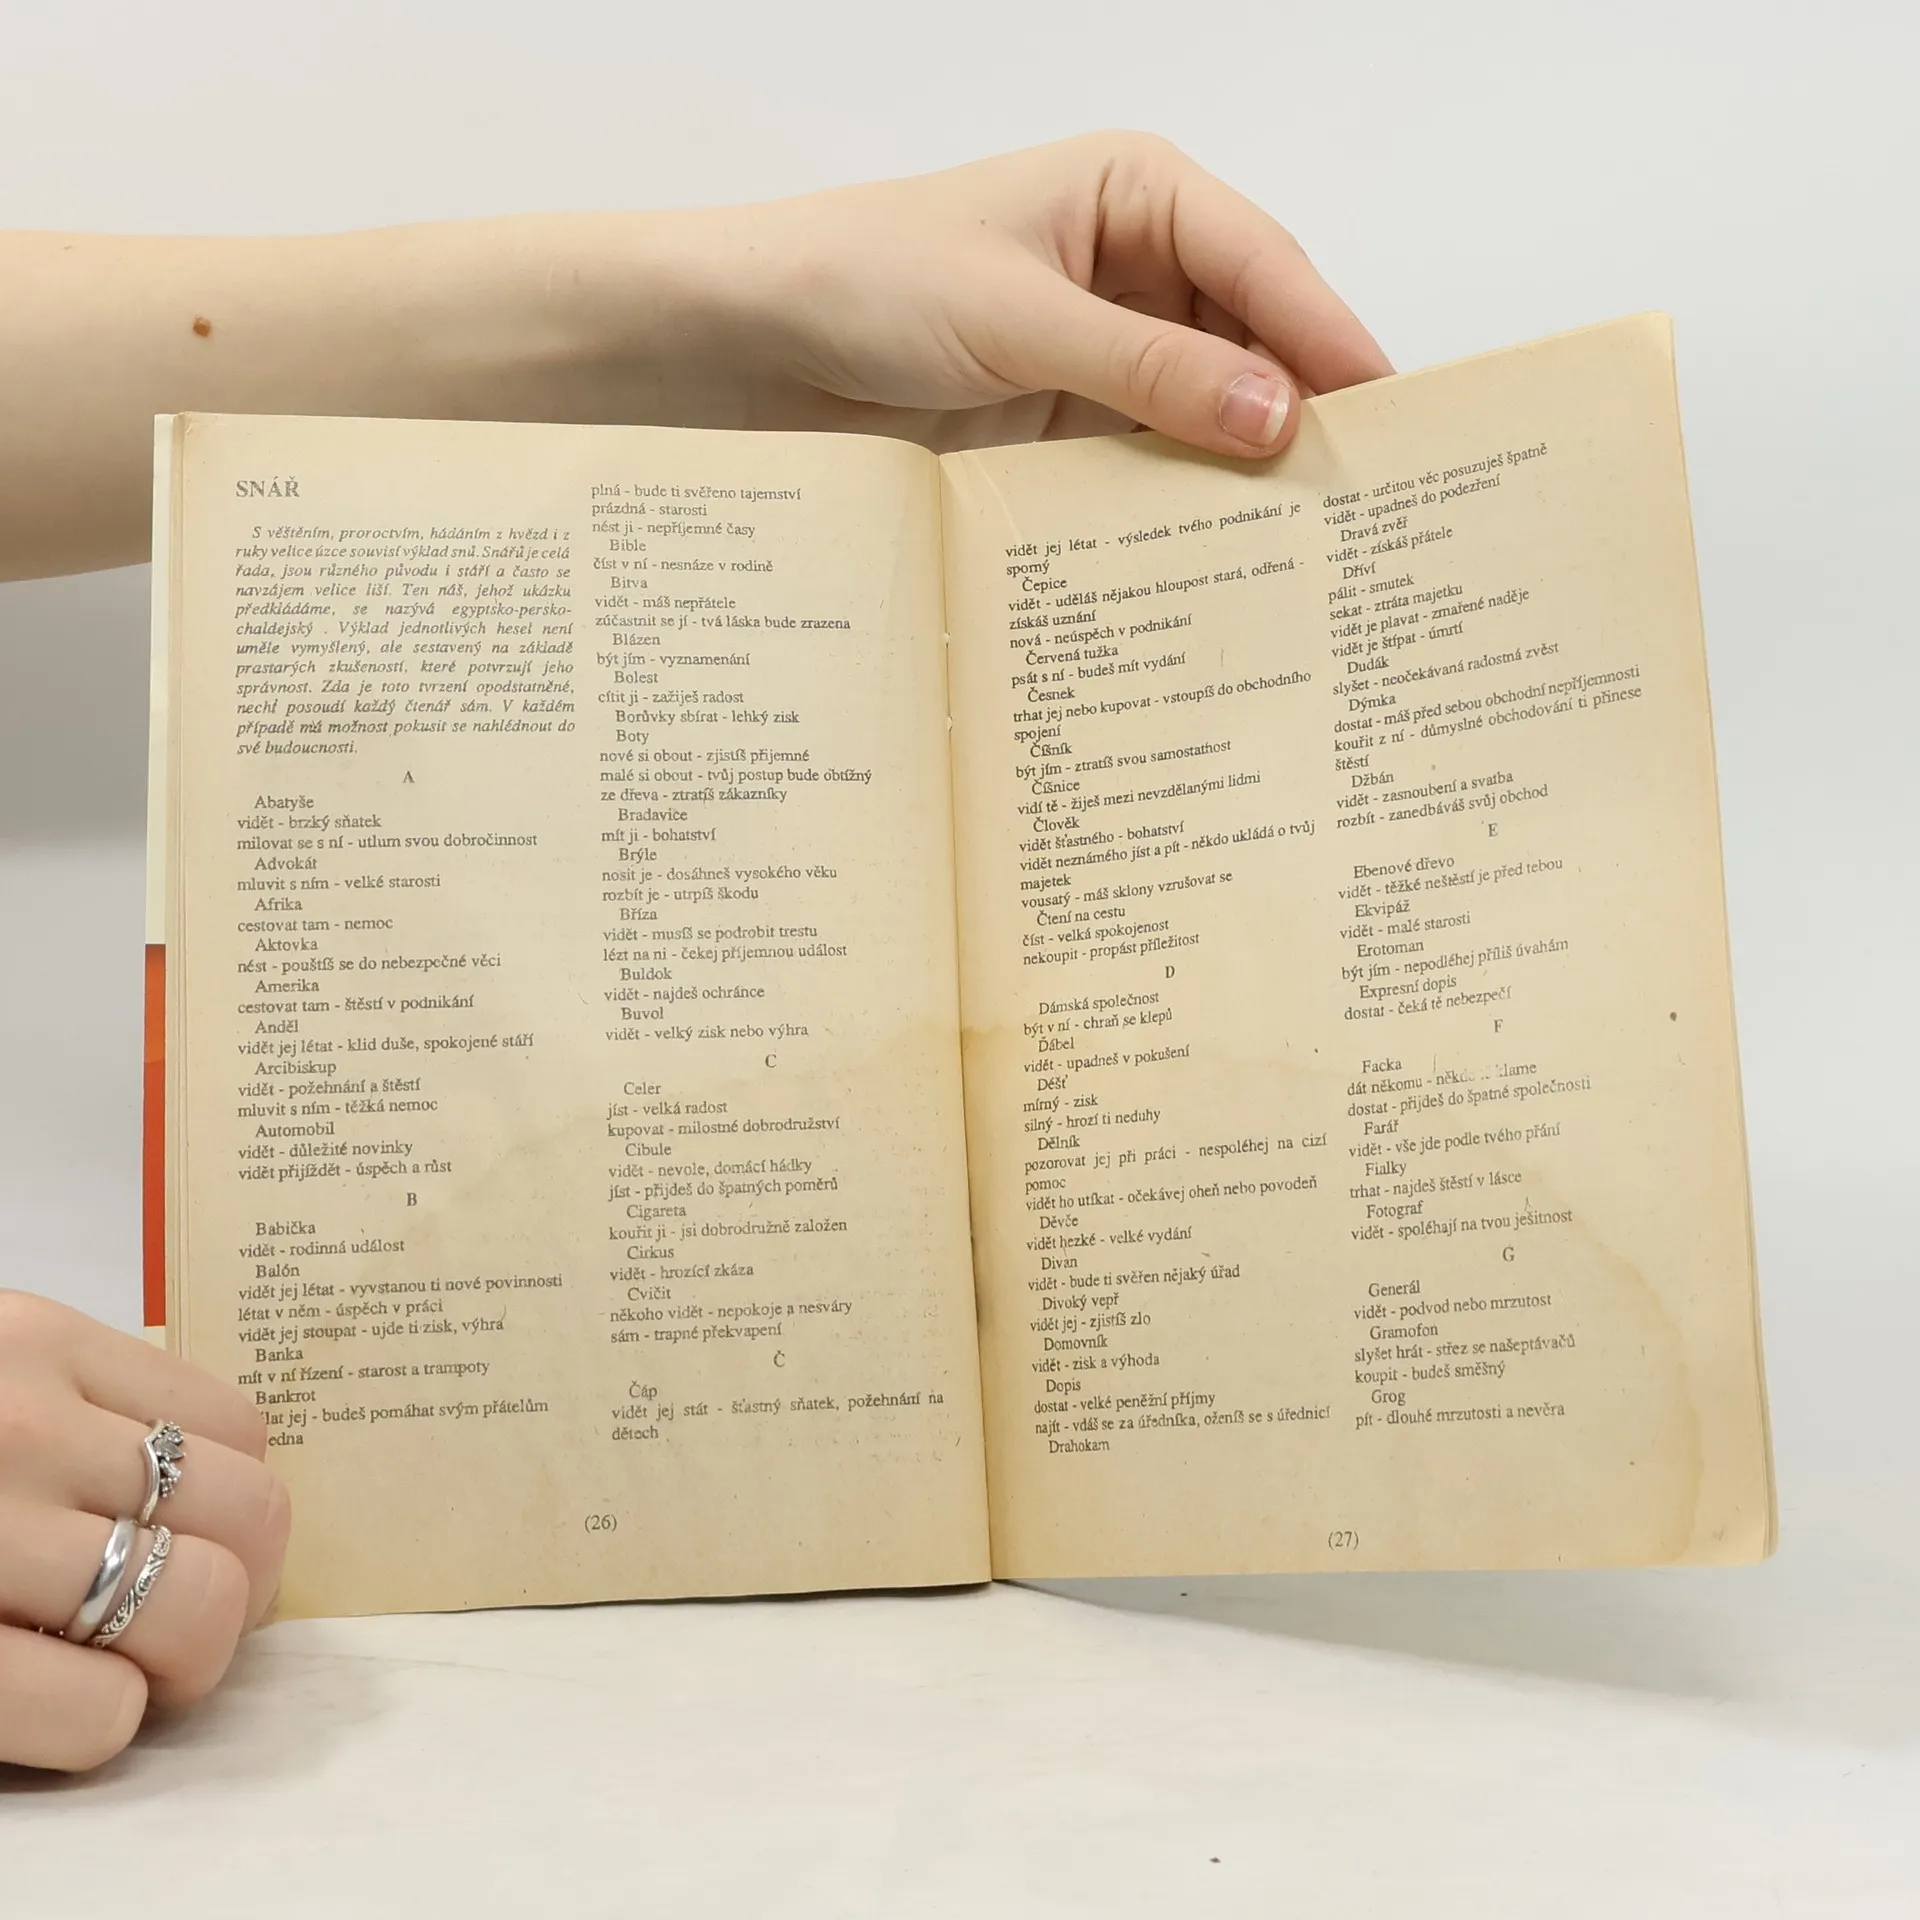 SNÁŘ
S věštěním, proroctvím, hádáním z hvězd i z
ruky velice úzce souvisí výklad snů. Snářů je celá
řada, jsou různého původu i stáří a často se
navzájem velice liší. Ten náš, jehož ukázku
předkládáme, se nazývá egyptsko-persko-
chaldejský . Výklad jednotlivých hesel není
uměle vymyšlený, ale sestavený na základě
prastarých zkušeností, které potvrzují jeho
správnost. Zda je toto tvrzení opodstatněné,
nechť posoudí každý čtenář sám. V každém
případě má možnost pokusit se nahlédnout do
své budoucnosti.
A
Abatyše
vidět - brzký sňatek
milovat se s ní - utlum svou dobročinnost
Advokát
mluvit s ním - velké starosti
Afrika
cestovat tam - nemoc
Aktovka
nést - pouštíš se do nebezpečné věci
Amerika
cestovat tam - štěstí v podnikání
Anděl
vidět jej létat - klid duše, spokojené stáří
Arcibiskup
vidět - požehnání a štěstí
mluvit s ním - těžká nemoc
Automobil
vidět - důležité novinky
vidět přijíždět - úspěch a růst
B
Babička
vidět - rodinná událost
Balón
vidět jej létat - vyvstanou ti nové povinnosti
létat v něm - úspěch v práci
vidět jej stoupat - ujde ti zisk, výhra
Banka
mít v ní řízení - starost a trampoty
Bankrot
lat jej - budeš pomáhat svým přátelům
edna
plná - bude ti svěřeno tajemství
prázdná - starosti
nést ji - nepříjemné časy
Bible
číst v ní - nesnáze v rodině
Bitva
vidět - máš nepřátele
zúčastnit se jí - tvá láska bude zrazena
Blázen
být jím - vyznamenání
Bolest
cítit ji - zažiješ radost
Borůvky sbírat - lehký zisk
Boty
nové si obout - zjistíš přijemné
malé si obout - tvůj postup bude obtížný
ze dřeva - ztratíš zákazníky
Bradavice
mít ji - bohatství
Brýle
nosit je - dosáhneš vysokého věku
rozbít je - utrpíš škodu
Bříza
vidět - musíš se podrobit trestu
lézt na ni - čekej příjemnou událost
Buldok
vidět - najdeš ochránce
Buvol
vidět - velký zisk nebo výhra
C
Celer
jíst - velká radost
kupovat - milostné dobrodružství
Cibule
vidět - nevole, domácí hádky
jíst - přijdeš do špatných poměrů
Cigareta
kouřit ji - jsi dobrodružně založen
Cirkus
vidět - hrozící zkáza
Cvičit
někoho vidět - nepokoje a nesváry
sám - trapné překvapení
Č
Čáp
vidět jej stát - šťastný sňatek, požehnání na
dětech
vidět jej létat - výsledek tvého podnikání je
sporný
Čepice
vidět - uděláš nějakou hloupost stará, odřená -
získáš uznání
nová - neúspěch v podnikání
Červená tužka
psát s ní - budeš mít vydání
Česnek
trhat jej nebo kupovat - vstoupíš do obchodního
spojení
Číšník
být jím - ztratíš svou samostatnost
Číšnice
vidí tě - žiješ mezi nevzdělanými lidmi
Člověk
vidět šťastného - bohatství
vidět neznámého jíst a pít - někdo ukládá o tvůj
majetek
vousatý - máš sklony vzrušovat se
Čtení na cestu
číst - velká spokojenost
nekoupit - propást příležitost
D
Dámská společnost
být v ní - chraň se klepů
Ďábel
vidět - upadneš v pokušení
Déšť
mírný - zisk
silný - hrozí ti neduhy
Dělník
pozorovat jej při práci - nespoléhej na cizí
pomoc
vidět ho utíkat - očekávej oheň nebo povodeň
Děvče
vidět hezké - velké vydání
Divan
vidět - bude ti svěřen nějaký úřad
Divoký vepř
vidět jej - zjistíš zlo
Domovník
vidět - zisk a výhoda
Dopis
dostat - velké peněžní příjmy
najít - vdáš se za úředníka, oženíš se s úřednicí
Drahokam
dostat - určitou věc posuzuješ špatně
vidět - upadneš do podezření
Dravá zvěř
vidět - získáš přátele
Dříví
pálit - smutek
sekat - ztráta majetku
vidět je plavat - zmařené naděje
vidět je štípat - úmrtí
Dudák
slyšet - neočekávaná radostná zvěst
Dýmka
dostat - máš před sebou obchodní nepříjemnosti
kouřit z ní - důmyslné obchodování ti přinese
štěstí
Džbán
vidět - zasnoubení a svatba
rozbít - zanedbáváš svůj obchod
E
Ebenové dřevo
vidět - těžké neštěstí je před tebou
Ekvipáž
vidět - malé starosti
Erotoman
být jím - nepodléhej příliš úvahám
Expresní dopis
dostat - čeká tě nebezpečí
F
Facka
dát někomu - někdo klame
dostat - přijdeš do špatné společnosti
Farář
vidět - vše jde podle tvého přání
Fialky
trhat - najdeš štěstí v lásce
Fotograf
vidět - spoléhají na tvou ješitnost
G
Generál
vidět - podvod nebo mrzutost
Gramofon
slyšet hrát - střez se našeptávačů
koupit - budeš směšný
Grog
pít - dlouhé mrzutosti a nevěra
(26)
(27)